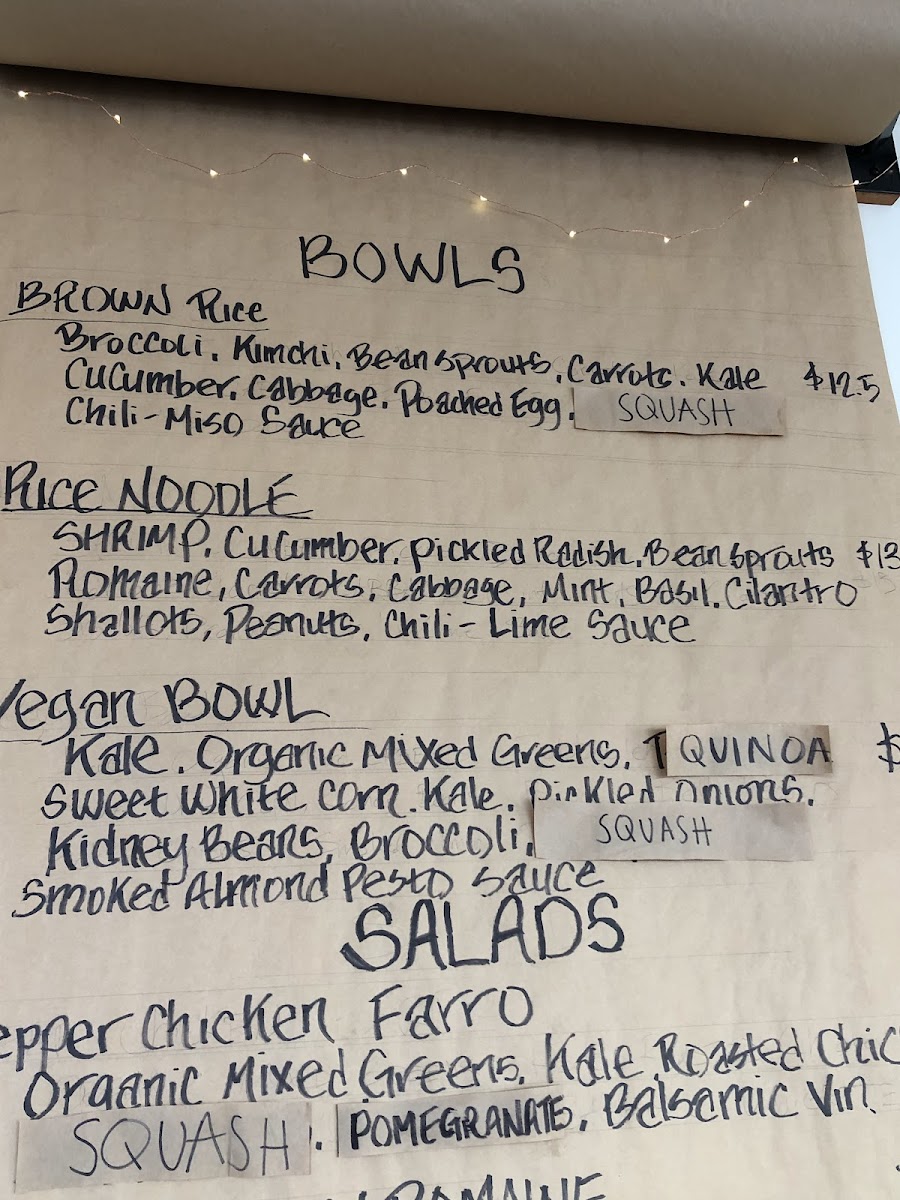 BOWLS
BROWN RICE
Broccoli. Kimchi. Bean sprouts. Carrots. Kale $12.5
Cucumber. Cabbage. Poached Egg. SQUASH
Chili-Miso Sauce
RICE NOODLE
SHRIMP. Cucumber. Pickled Radish. Bean sprouts $13
Romaine, Carrots, Cabbage, Mint, Basil. Cilantro
Shallots, Peanuts, Chili-Lime Sauce
Vegan BOWL
Kale. Organic Mixed Greens. QUINOA $
Sweet White Corn. Kale. Pickled Onions.
Kidney Beans, Broccoli, SQUASH
Smoked Almond Pesto Sauce
SALADS
epper Chicken Farro
Organic Mixed Greens. Kale. Roasted Chic
SQUASH. POMEGRANATE. Balsamic Vin.
ROMAINE